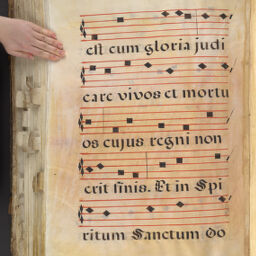 est cum gloria judi
care vivos et mortu
os cujus regni non
erit finis. Et in Spi
ritum Sanctum Do